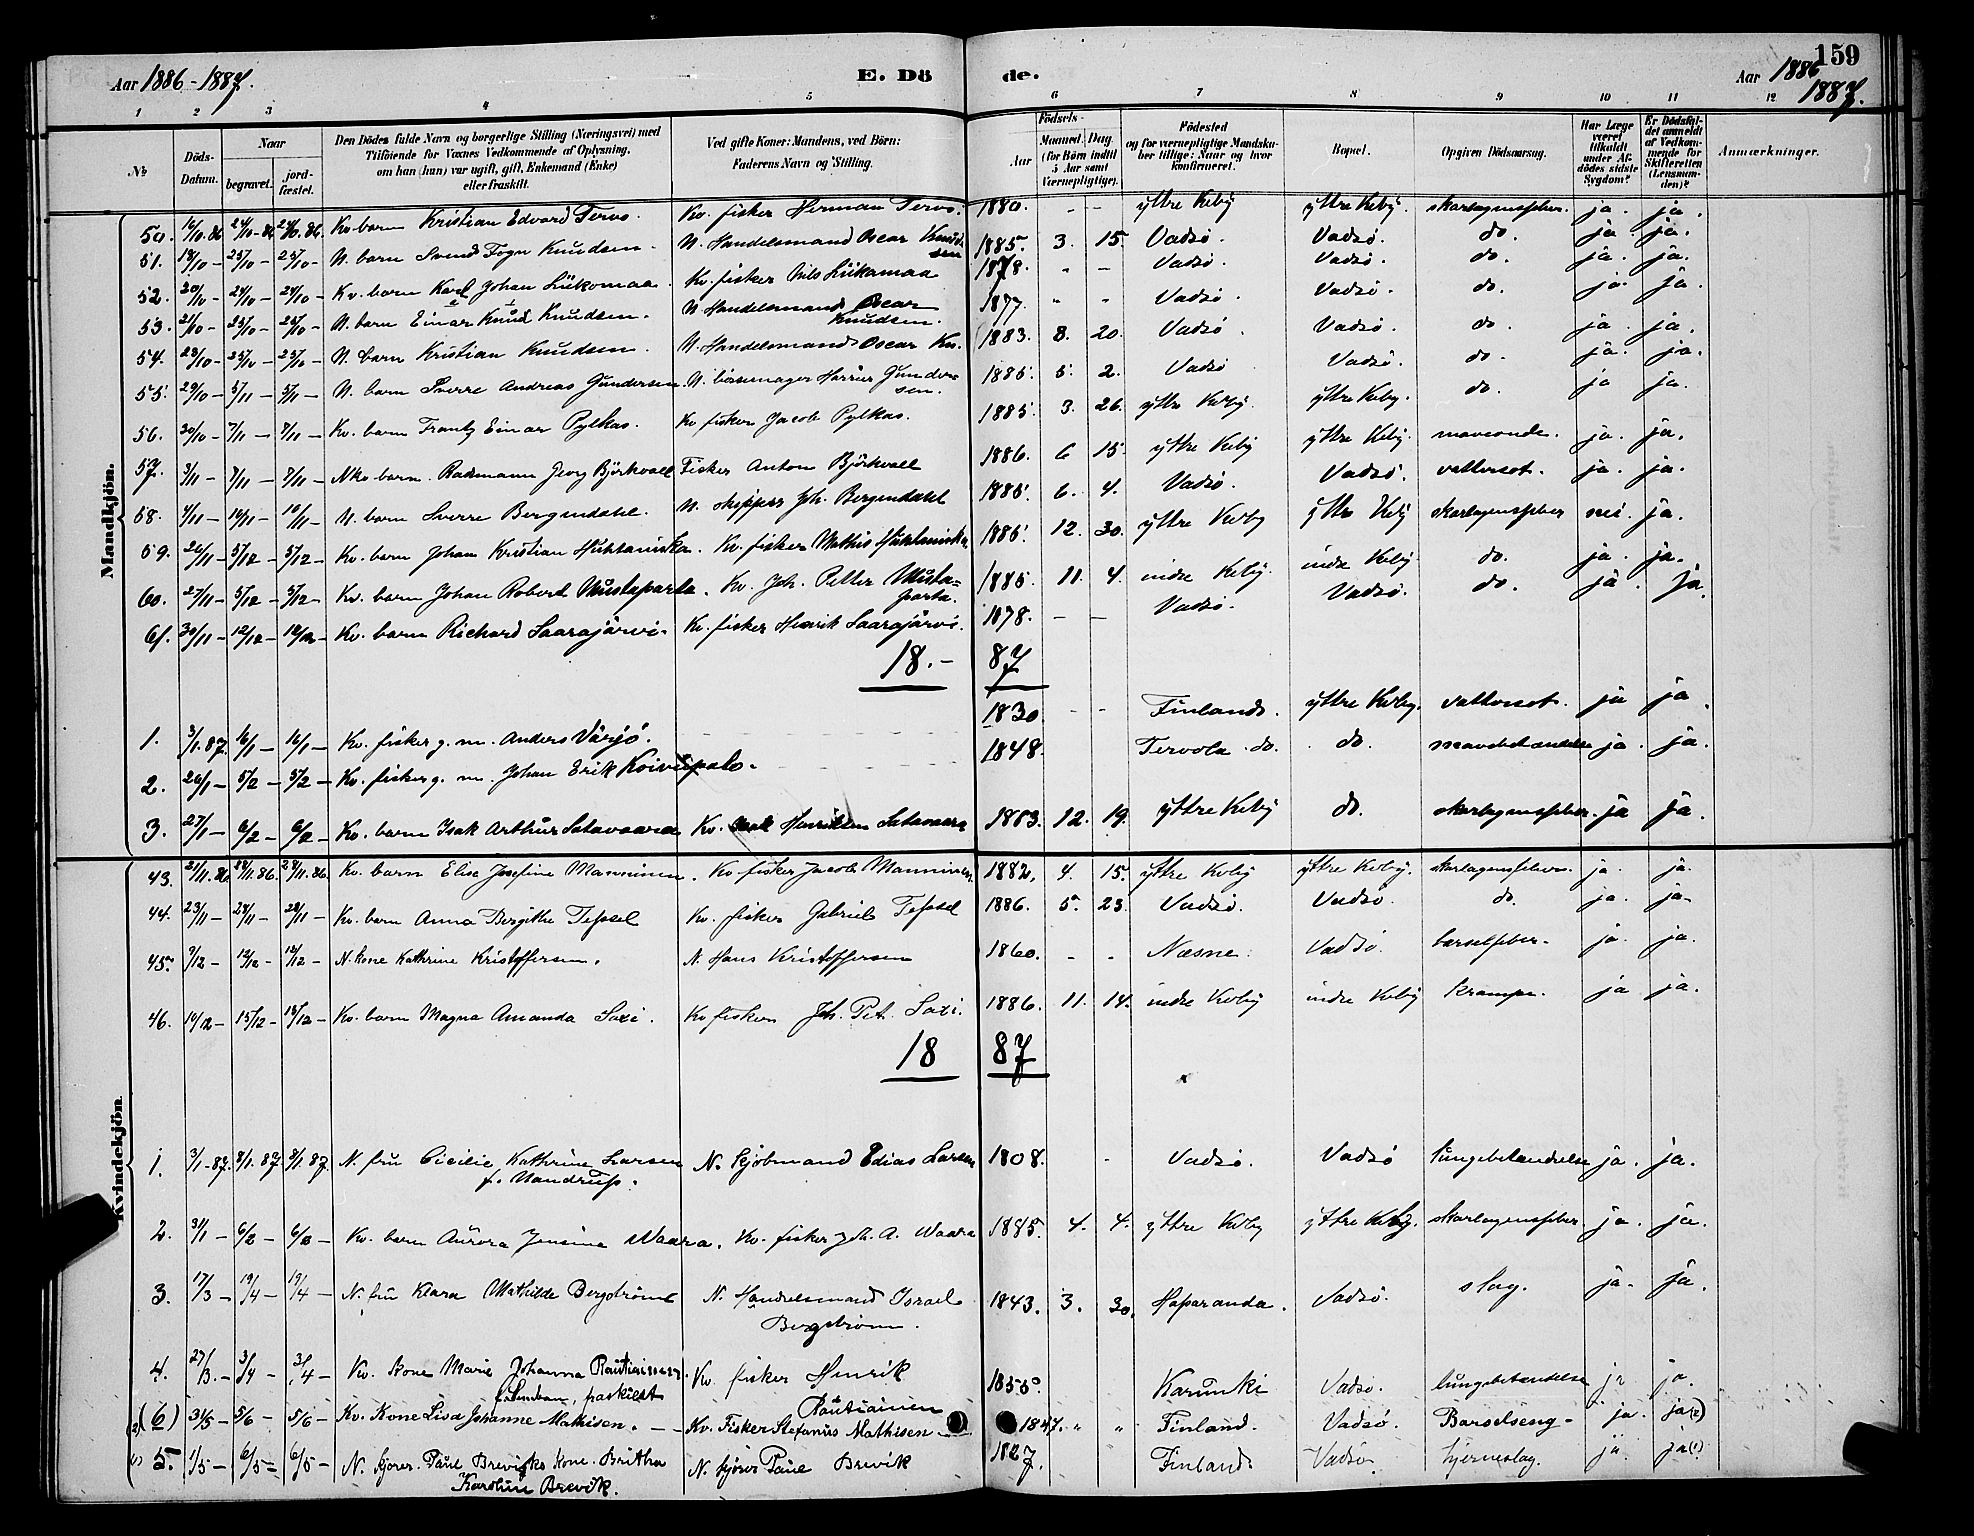 159
Aar 1886-1887.
E. Dö
de.
Aar 1886
1887.
1 2 3 4 5 6 7 8 9 10 11 12
№
Döds-
Datum.
Naar
begravet.
jord-
fæstet.
Den Dödes fulde Navn og borgerlige Stilling (Næringsvei) med
Tilföiende for Voxnes Vedkommende af Oplysning,
om han (hun) var ugift, gift, Enkemand (Enke)
eller fraskilt.
Ved gifte Koner: Mandens, ved Börn:
Faderens Navn og Stilling.
Födsels-
Aar
Maaned. Dag.
(for Börn indtil
5 Aar samt
Værnepligtige).
Födested
og for værnepligtige Mandska-
ber tillige: Naar og hvor
konfirmeret.
Bopæl.
Opgiven Dödsaarsag.
Har Læge
været
tilkaldt
under Af-
dödes sidste
Sygdom?
Er Dödsfal-
det anmeldt
af Vedkom-
mende for
Skifteretten
(Lensman-
den)?
Anmærkninger.
Mandkjön.
50. 16/10.86 24/10-86 24/10.86 Kv. barn Kristian Edvard Tervo. Kv. fisker Herman Tervo. 1880. - - yttre Keby yttre Keby. skarlagensfeber. ja. ja.
51. 18/10 - 25/10 - 25/10 - N. barn Svend Togn Knudsen. N. Handelsmand Oscar Knudsen 1885. 3. 15. Vadsø. Vadsø. do. ja ja.
52. 20/10 - 24/10 - 24/10 - Kv. barn Karl Johan Liikamaa. Kv. fisker Nils Liikamaa 1878. " - Vadsø. Vadsø. do. ja. ja.
53. 21/10 - 25/10 - 25/10 - N. barn Einar Knud Knudsen. N. Handelsmand Oscar
Knudsen. 1877. " " Vadsø. Vadsø. do. ja. ja.
54. 23/10 - 25/10 - 25/10 - N. barn Kristian Knudsen. N. Handelsmand Oscar Kn. 1883. 8. 20. Vadsø. Vadsø. do. ja. ja.
55. 29/10 - 5/11 - 5/11 - N. barn Sverre Andreas Gundersen N. bøssemager Gunder-
sen. 1885. 5. 2. Vadsø Vadsø. do. ja. ja.
56. 30/10 - 7/11 - 7/11 - Kv. barn Frantz Einar Pylkas. Kv. fisker Jacob Pylkas. 1885. 3. 26. yttre Keby. yttre Keby. do. ja ja.
57. 3/11 - 7/11 - 7/11 - Nkv. barn. Radmann Georg Björkvall Fisker Anton Björkvall 1886. 6 15. yttre Keby yttre Keby. maveonde. ja. ja.
58. 4/11 - 10/11 - 10/11 - N. barn Sverre Bergendahl. N. skipper Joh. Bergendahl 1885. 6. 4. Vadsø. Vadsø. vattersot. ja. ja.
59. 26/11 - 5/12 - 5/12 - Kv. barn Johan Kristian Huhtaniska. Kv. fisker Mathis Huhtaniska 1885. 12. 30. yttre Keby yttre Keby skarlagensfeber nei. ja.
60. 27/11 - 5/12 - 5/12 - Kv. barn Johan Robert Mustaparta. Kv. Joh. Petter Musta-
parta. 1885. 11. 4. indre Keby. indre Keby. do. ja. ja.
61. 30/11 - 12/12 - 12/12 - Kv. barn Richard Saarajärvi. Kv. fisker Henrik Saarajärvi. 1878. - - Vadsø. Vadsø. do. ja. ja.
18.- 87
1. 3/1.87. 16/1 - 16/1 - Kv. fisker g. m. Anders Värjö. 1830. - - Finland. yttre Keby. vattersot. ja ja.
2. 26/1 - 5/2 - 5/2 - Kv. fisker g. m. Johan Erik Koivupalo. 1848. Tervola. do. do. mavebetændelse ja. ja.
3. 27/1 - 6/2 - 6/2 - Kv. barn Isak Arthur Satavaara Kv. Henriksen Satavaara 1883. 12. 19. yttre Keby do. skarlagensfeber. ja ja.
Kvindekjön.
43. 21/11.86 28/11.86. 28/11.86. Kv. barn Elise Josefine Manninen. Kv. fisker Jacob Manninen. 1882. 4. 15. yttre Keby yttre Keby. skarlagensfeber. ja. ja.
44. 23/11 - 28/11 - 28/11 - Kv. barn Anna Bergithe Tessel Kv. fisker Gabriel Tessel 1886. 5. 23. Vadsø. Vadsø. do. ja. ja.
45. 9/12 - 12/12 - 12/12 - N. kone Kathrine Kristoffersen. N. Hans Kristoffersen 1860. - - Næsne. Vadsø. barselfeber. ja. ja.
46. 14/12 - 15/12 - 18/12 - Kv. barn Magna Amanda Saxi. Kv. fisker Joh. Pet. Saxi. 1886. 11. 14. indre Keby indre Keby krampe. ja ja.
18 87
1. 3/1-87. 8/1.87 8/1.87 N. fru Cicilie Kathrine Larsen
f. Mandrup. N. Kjøbmand Edias Larsen 1808. - Vadsø. Vadsø lungebetændelse ja. ja.
2. 31/1 - 6/2 - 6/2 - Kv. barn Aurora Jensine Waara. Kv. fisker Joh. A. Waara 1885. 4. 4. yttre Keby yttre Keby. skarlagensfeber. ja. ja.
3. 17/3 - 19/4 - 19/4 - N. fru Klara Mathilde Bergström N. Handelsmand Israel
Bergström. 1843. 3. 30. Haparanda. Vadsø. slag. ja. ja.
4. 27/3. - 3/4 - 3/4 - Kv. kone Marie Johanna Rautiainen.
Kv. fisker Henrik
Rautiainen 1855. " Karunki Vadsø. lungebetændelse ja ja.
(2) (6) 31/5 - 5/6 - 5/6 - Kv. Kone Lisa Johanne Mathisen. - Kv. Fisker Stefanus Mathisen 1847. " " Finland. Vadsø. Barselseng - ja. ja (2)
(1) 5. 1/5 - 6/5 - 6/5 - N. kjører Paul Breviks kone. Britha
Karoline Brevik. N. kjører Paul Brevik 1827. Finland Vadsø. hjerneslag. ja ja (1)